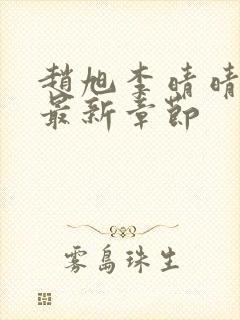 趙旭李晴晴
最新章節
雾島珠生